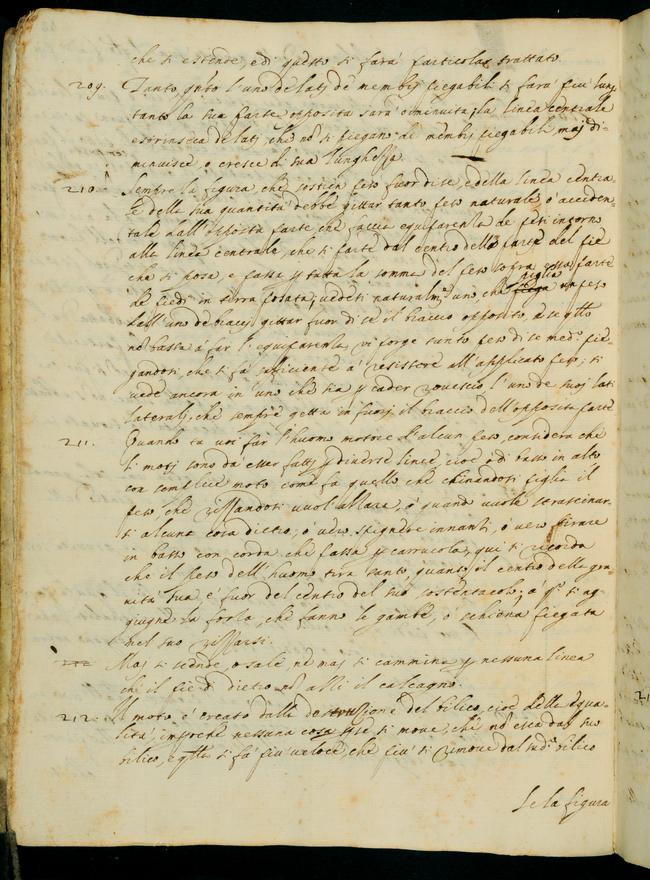 che si estende, e di questo si farà particolar trattato.
209. Tanto qnto l'uno de latj de membrj piegabili si farà più lungo
tanto la sua parte opposita sarà diminuita; la linea centrale
estrinseca de latj, che nō si piegano de membrj piegabili maj di-
minuisce, o cresce di sua lunghezza.
210. Sempre la figura, che sostien peso fuor di se, e della linea centra-
le della sua quantità debbe gittar tanto peso naturale, o acciden-
tale dall'opposita parte, che faccia equiparenza de pesi intorno
alla linea centrale, che si parte dal centro della parte del piè
che si posa, e passa p tutta la somma del peso sopra essa parte
de piedi in terra posata; vedesi naturalm.e uno, che piglia un peso
dall'uno de braccj gittar fuor di se il braccio opposito, e se qsto
nō basta à far l'equiparenza, vi porge tanto peso di se med.o pie-
gandosi, che si fà sufficiente à resistere all'applicato peso; si
vede ancora in uno che sia p cader rovescio l'uno de suoj lati
laterali, che sempre getta in fuorj il braccio dell'opposita parte
211. Quando tu voi far l'huomo motore d'alcun peso, considera che
li motj sono da esser fattj p diverse linee, cioè ò di basso in alto
con semplice moto, come fa quello che chinandosi piglia il
peso che rizzandosi vuol alzare, ò quando vuole strascinar-
si alcuna cosa dietro, ò vero spignere innanti, ò vero tirare
in basso con corda, che passa p carrucola, qui si ricorda
che il peso dell'huomo tira tanto, quanto il centro della gra-
vità sua è fuor del centro del suo sostentacolo; à q.o si ag-
giugne la forza, che fanno le gambe, ò schiena piegata
nel suo rizzarsi.
Maj si scende, o sale, nè maj si cammina p nessuna linea
che il piè di dietro nō alzi il calcagno.
212. Il moto è creato dalla destruzione del bilico, cioè della equa-
lità, imperchè nessuna cosa p se si move, che nō esca dal suo
bilico, e qlla si fà più veloce, che più si rimove dal sud.o bilico
Se la figura